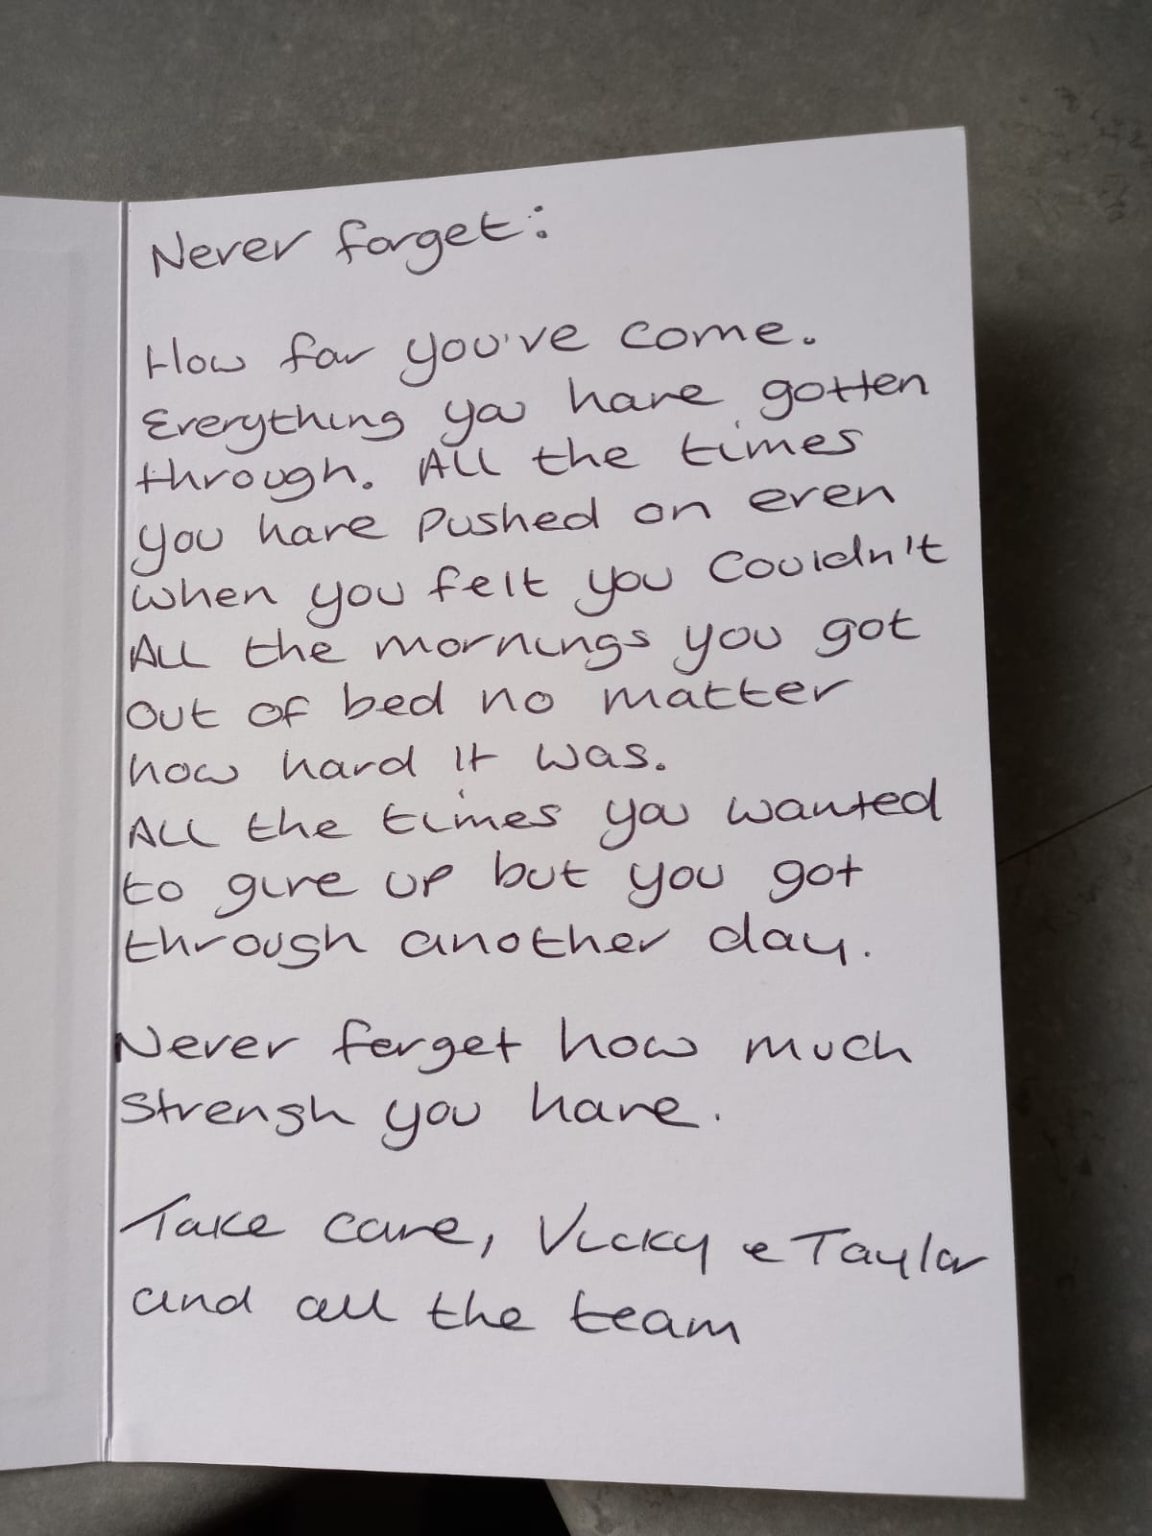 Never forget:
How far you've come.
Everything you have gotten
through. All the times
you have pushed on even
when you felt you couldn't
All the mornings you got
out of bed no matter
how hard it was.
All the times you wanted
to give up but you got
through another day.
Never forget how much
strengh you have.
Take care, Vicky & Taylor
and all the team